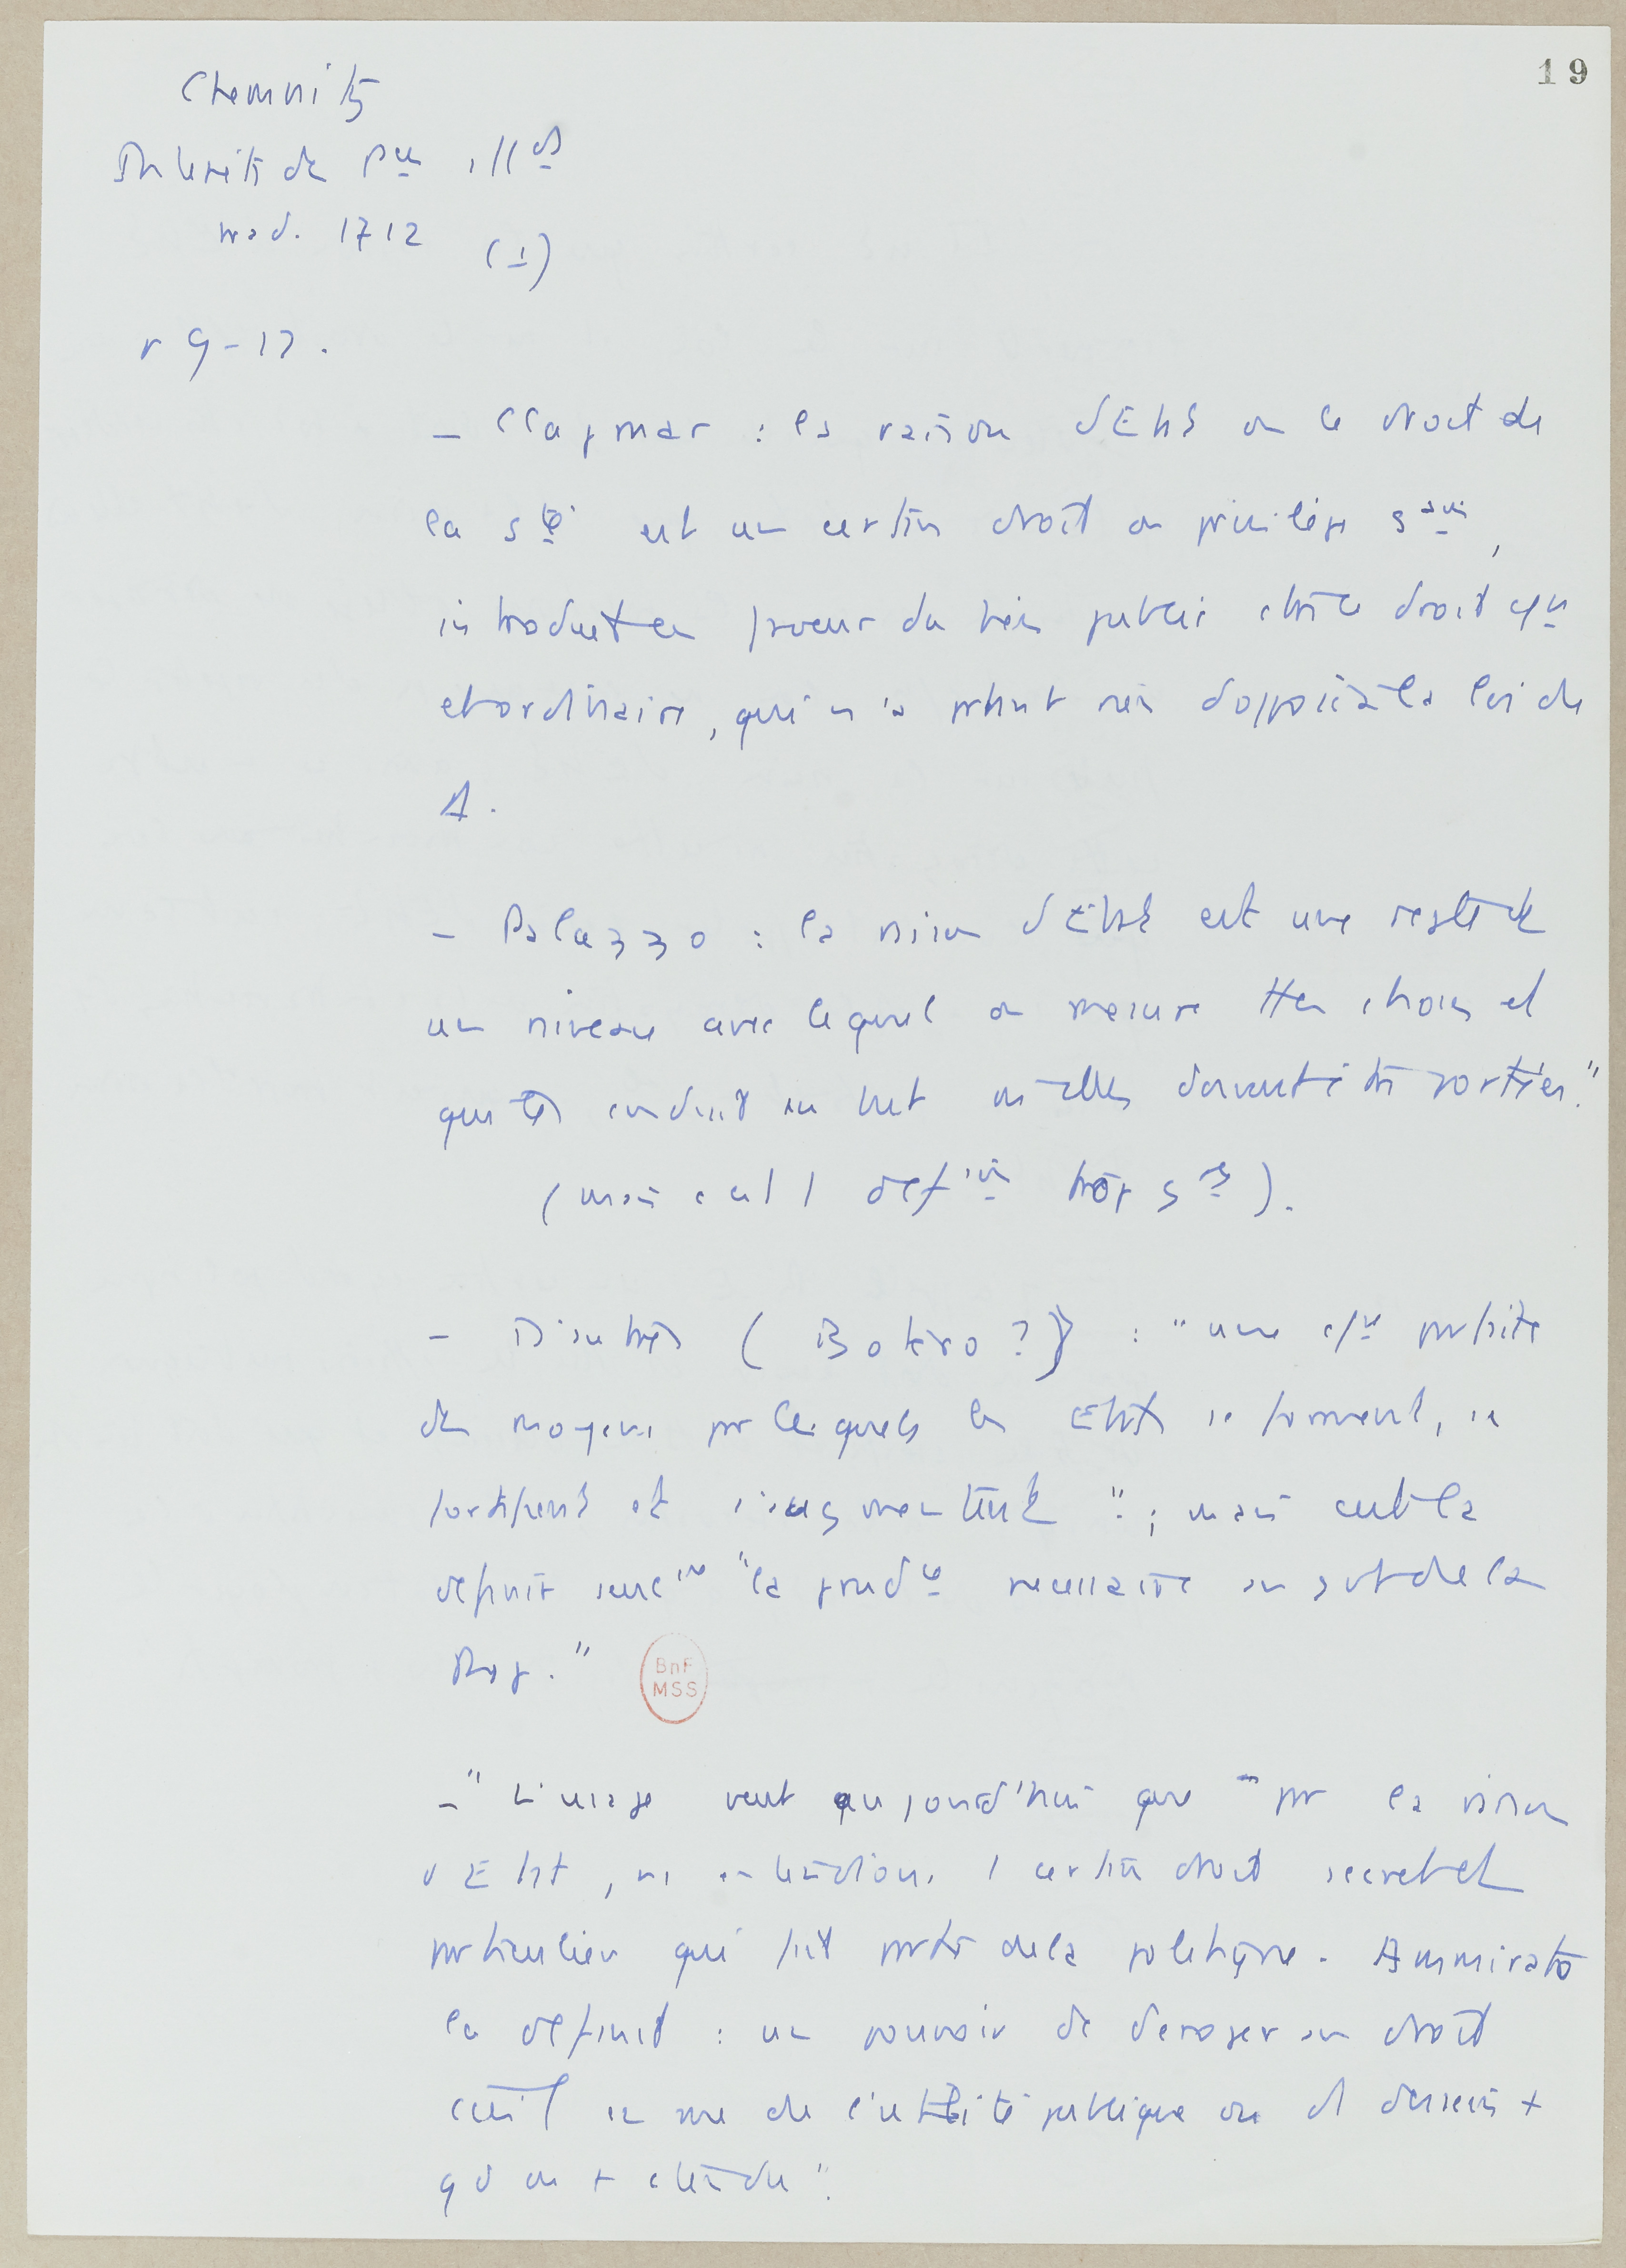 19
Chemnitz
Interêts des Pces Allds
trad. 1712 (1)
p 9-13.
- Clapmar : la raison d'Etat ou le droit de
la sté est un certain droit ou privilège
introduit en faveur du bien public contre le droit
et ordinaire, qui n'a pourtant rien d'opposé à la loi de
Δ.
- Palazzo : la raison d'Etat est une regle et
un niveau avec lequel on mesure ttes choses et
qui les conduit au but où elles doivent être portées."
(mais c'est 1 défion trop
- D'autres (Botero ?) : "une parfaite
des moyens par lesquels les Etats se forment, se
fortifient et s'augmentent" ; mais c'est la
definit seult "la prudce necessaire au sujet de la
Rep."
BnF
MSS
- "L'usage veut aujourd'hui que par la raison
d'Etat, ns entendions 1 certain droit secret et
particulier qui fait partie de la politique. Ammirato
la definit : un pouvoir de deroger au droit
civil en vue de l'utilité publique ou d'1 dessein +
gd ou + etendu".